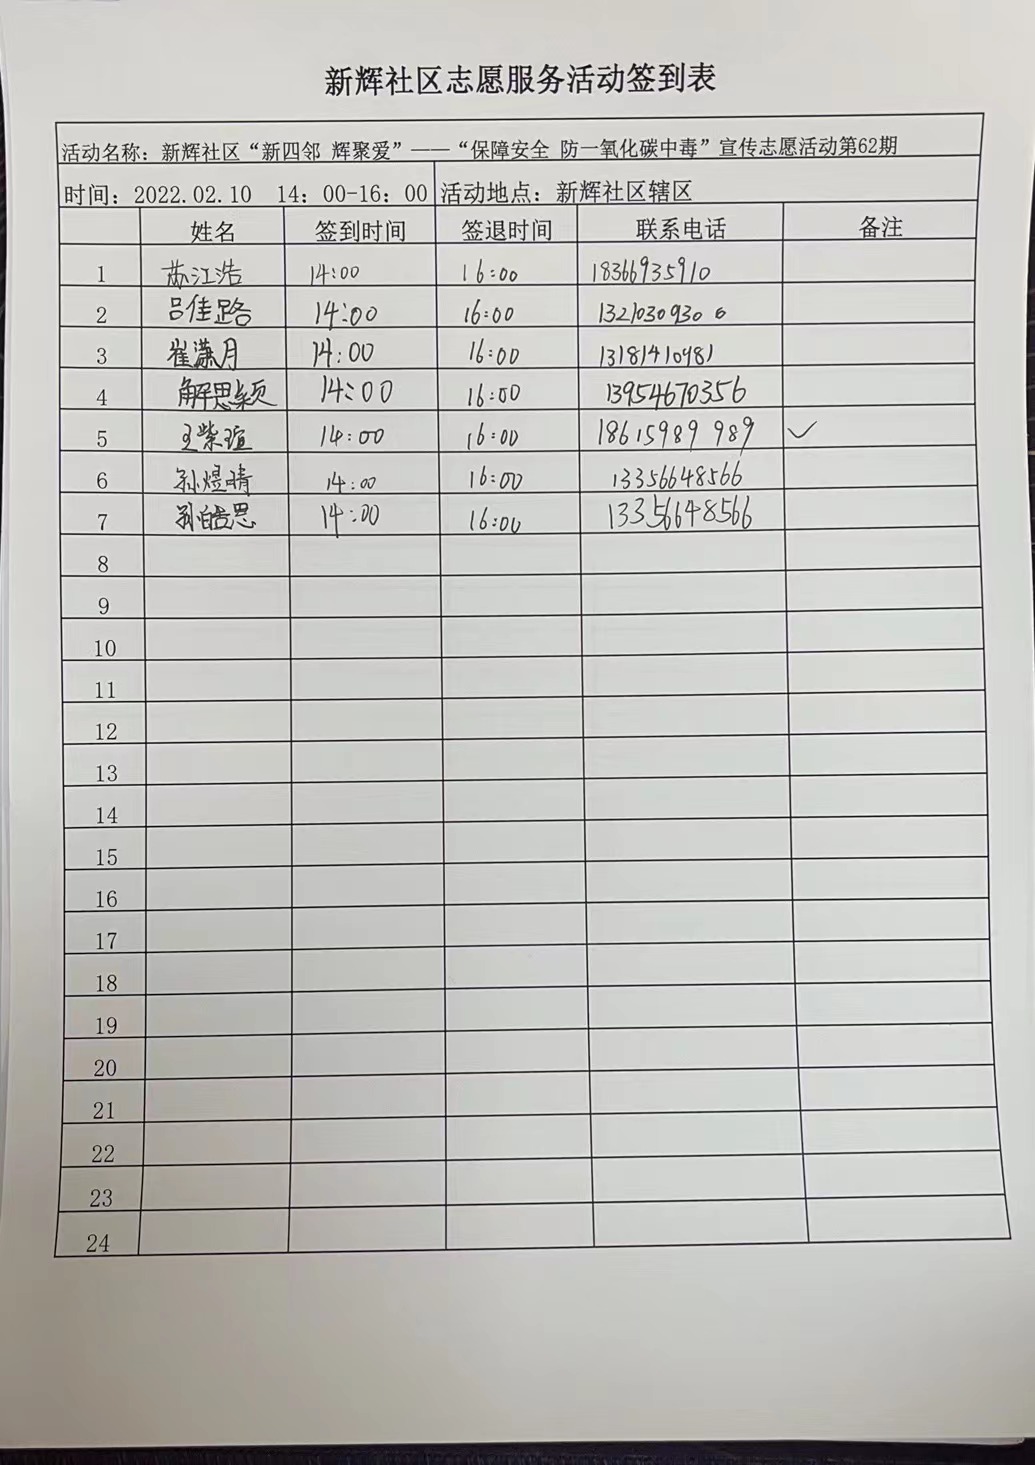 新辉社区志愿服务活动签到表
活动名称：新辉社区“新四邻 辉聚爱”——“保障安全 防一氧化碳中毒”宣传志愿活动第62期
时间：2022.02.10 14：00-16：00 活动地点：新辉社区辖区
姓名 签到时间 签退时间 联系电话 备注
1 苏江浩 14:00 16:00 18366935910
2 吕佳路 14:00 16:00 13210309300
3 崔潇月 14:00 16:00 13181410481
4 解思颖 14:00 16:00 13954670356
5 王紫瑄 14:00 16:00 18615989989 ✓
6 孙煜晴 14:00 16:00 13356648566
7 孙皓思 14:00 16:00 13356648566
8
9
10
11
12
13
14
15
16
17
18
19
20
21
22
23
24